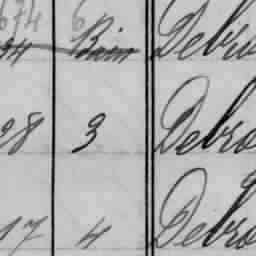 674 6
34 Debr
28 3 Debro
17 4 Debro